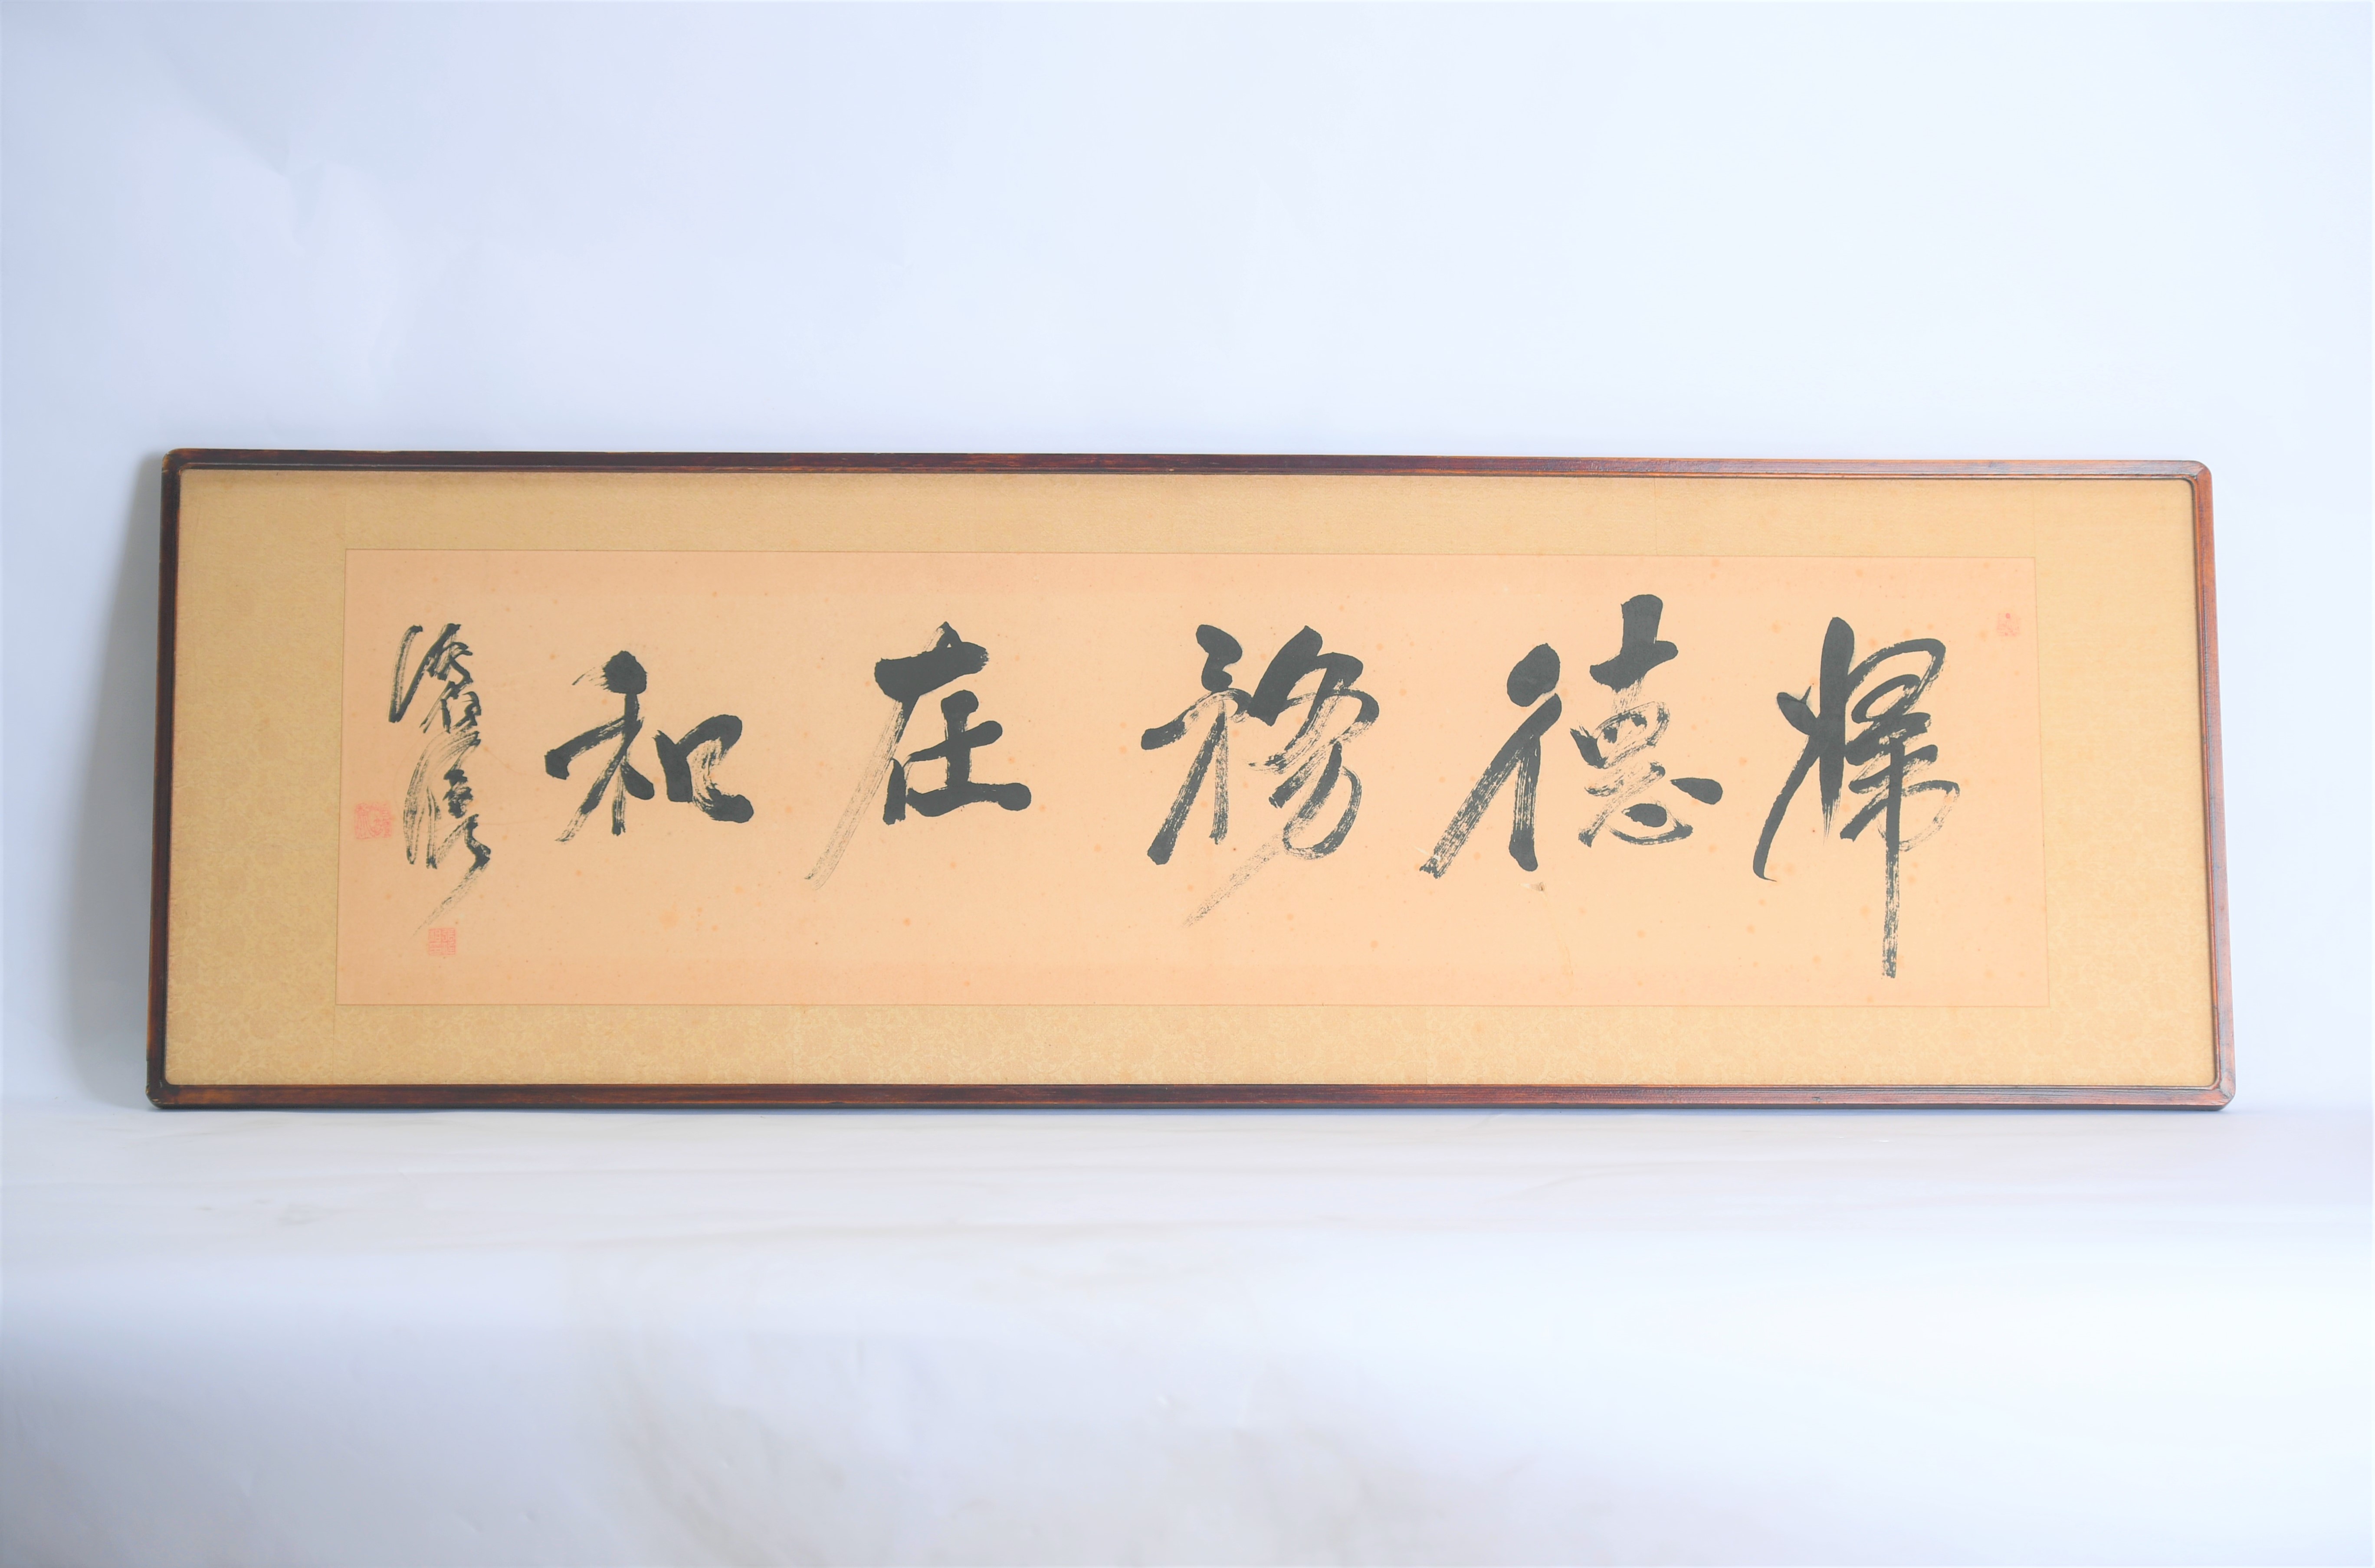 婦德務在和